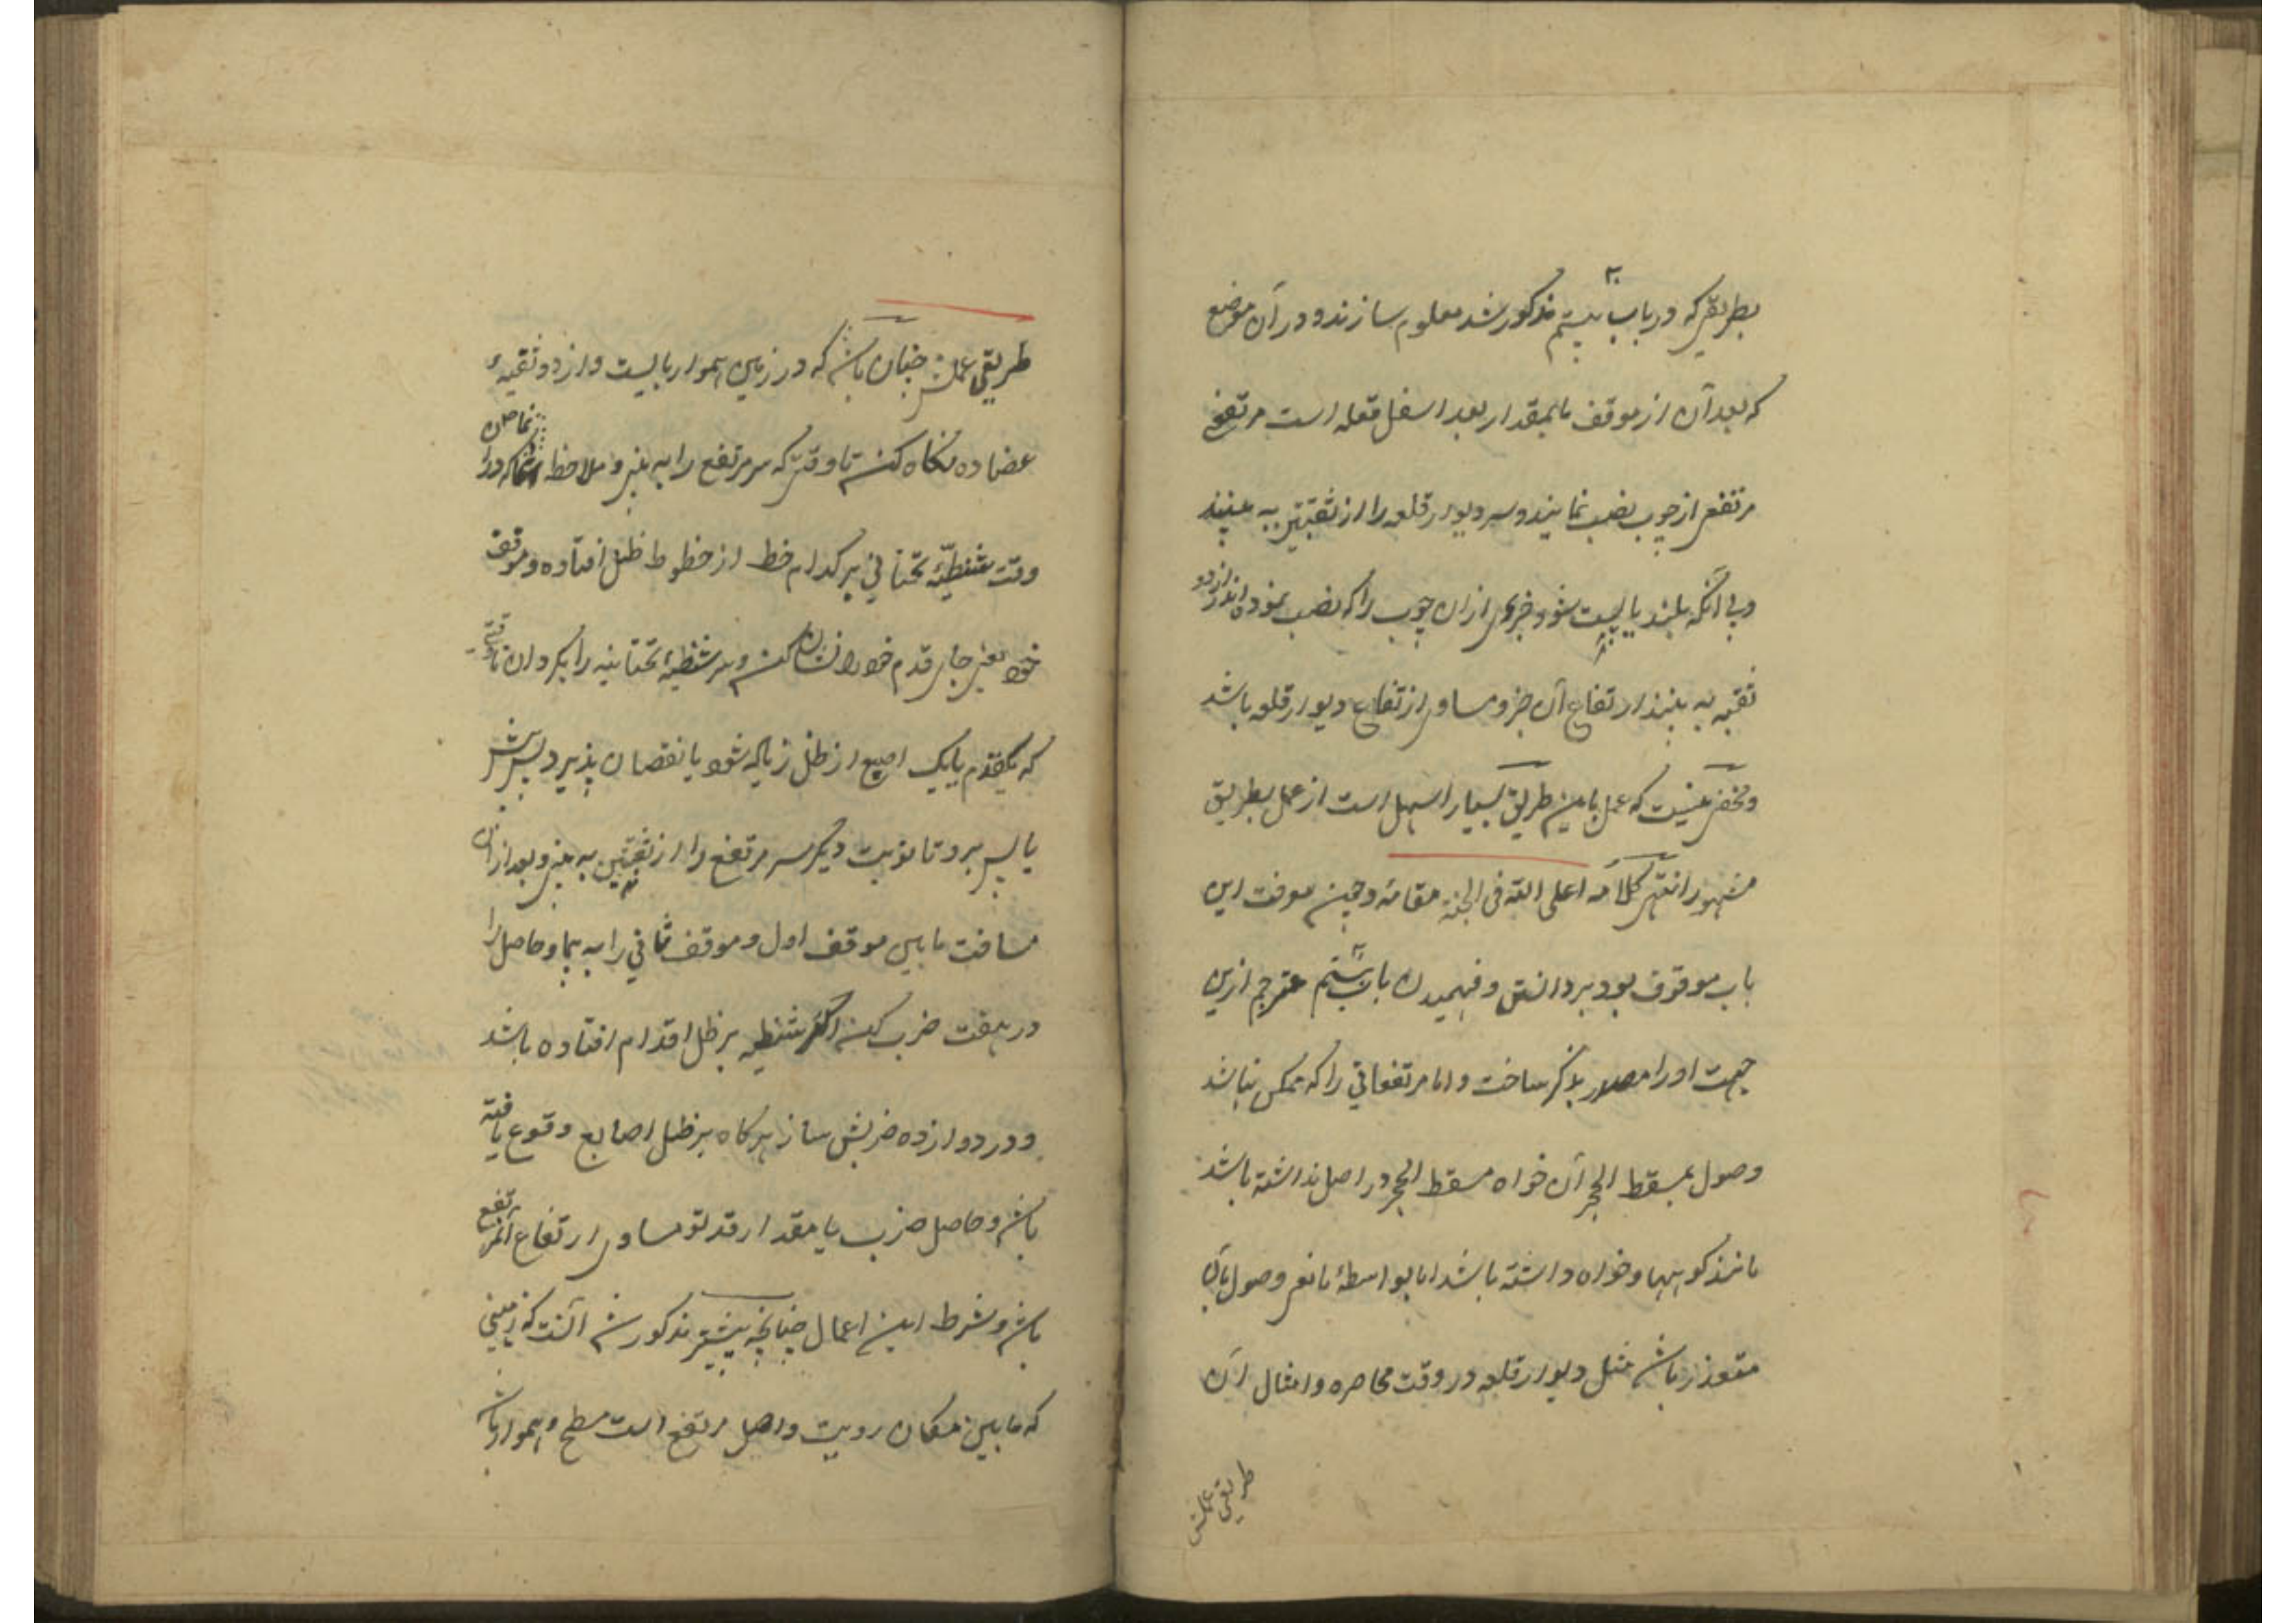 بطریقی که در باب بیستم مذکور شد معلوم سازند و در آن موضع
که بعد آن از موقف بمقدار بعد اسفل قلعه است مرتفع
مرتفعی از چوب نصب نمایند و سر دیوار قلعه را از ثقبتین به بینند
و بی آنکه بلند یا پست شود جزوی از ان چوب را که نصب نموده اند از دو
ثقبه به بینند ارتفاع آن جزو مساوی ارتفاع دیوار قلعه باشد
و مخفی نیست که عمل باین طریق بسیار اسهل است از عمل بطریق
مشهور انتهی کلامه اعلی الله فی الجنة مقامه و چون معرفت این
باب موقوف بود بر دانستن و فهمیدن باب بیستم مترجم ازین
جهت او را مصدر بذکر ساخت و اما مرتفعاتی را که ممکن نباشد
وصول بمسقط الحجر آن خواه مسقط الحجر در اصل نداشته باشد
مانند کوهها و خواه داشته باشد اما بواسطهٔ مانعی وصول بآن
متعذر باشد مثل دیوار قلعه در وقت محاصره و امثال آن
طریق عملش
طریق عملش چنان باشد که در زمین هموار بایست و از دو ثقبهٔ
عضاده نگاه کن تا وقتی که سر مرتفع را به بینی و ملاحظه نما که در ان
وقت شظیهٔ تحتانی بر کدام خط از خطوط ظل افتاده و موقف
خود یعنی جای قدم خود را نشان کن و سر شظیهٔ تحتانیه را بگردان تا وقتی
که یکقدم یا یک اصبع از ظل زیاده شود یا نقصان پذیرد پس پیش
یا پس برو تا نوبت دیگر سر مرتفع را از ثقبتین به بینی و بعد از ان
مسافت مابین موقف اول و موقف ثانی را به پیما و حاصل را
در هفت ضرب کن اگر شظیه بر ظل اقدام افتاده باشد
و در دوازده ضربش ساز هرگاه بر ظل اصابع وقوع یافته
باشد و حاصل ضرب با مقدار قد تو مساوی ارتفاع آن مرتفع
باشد و شرط این اعمال چنانچه پیشتر مذکور شد آنست که زمینی
که مابین مکان رویت و اصل مرتفع است مسطح و هموار باشد